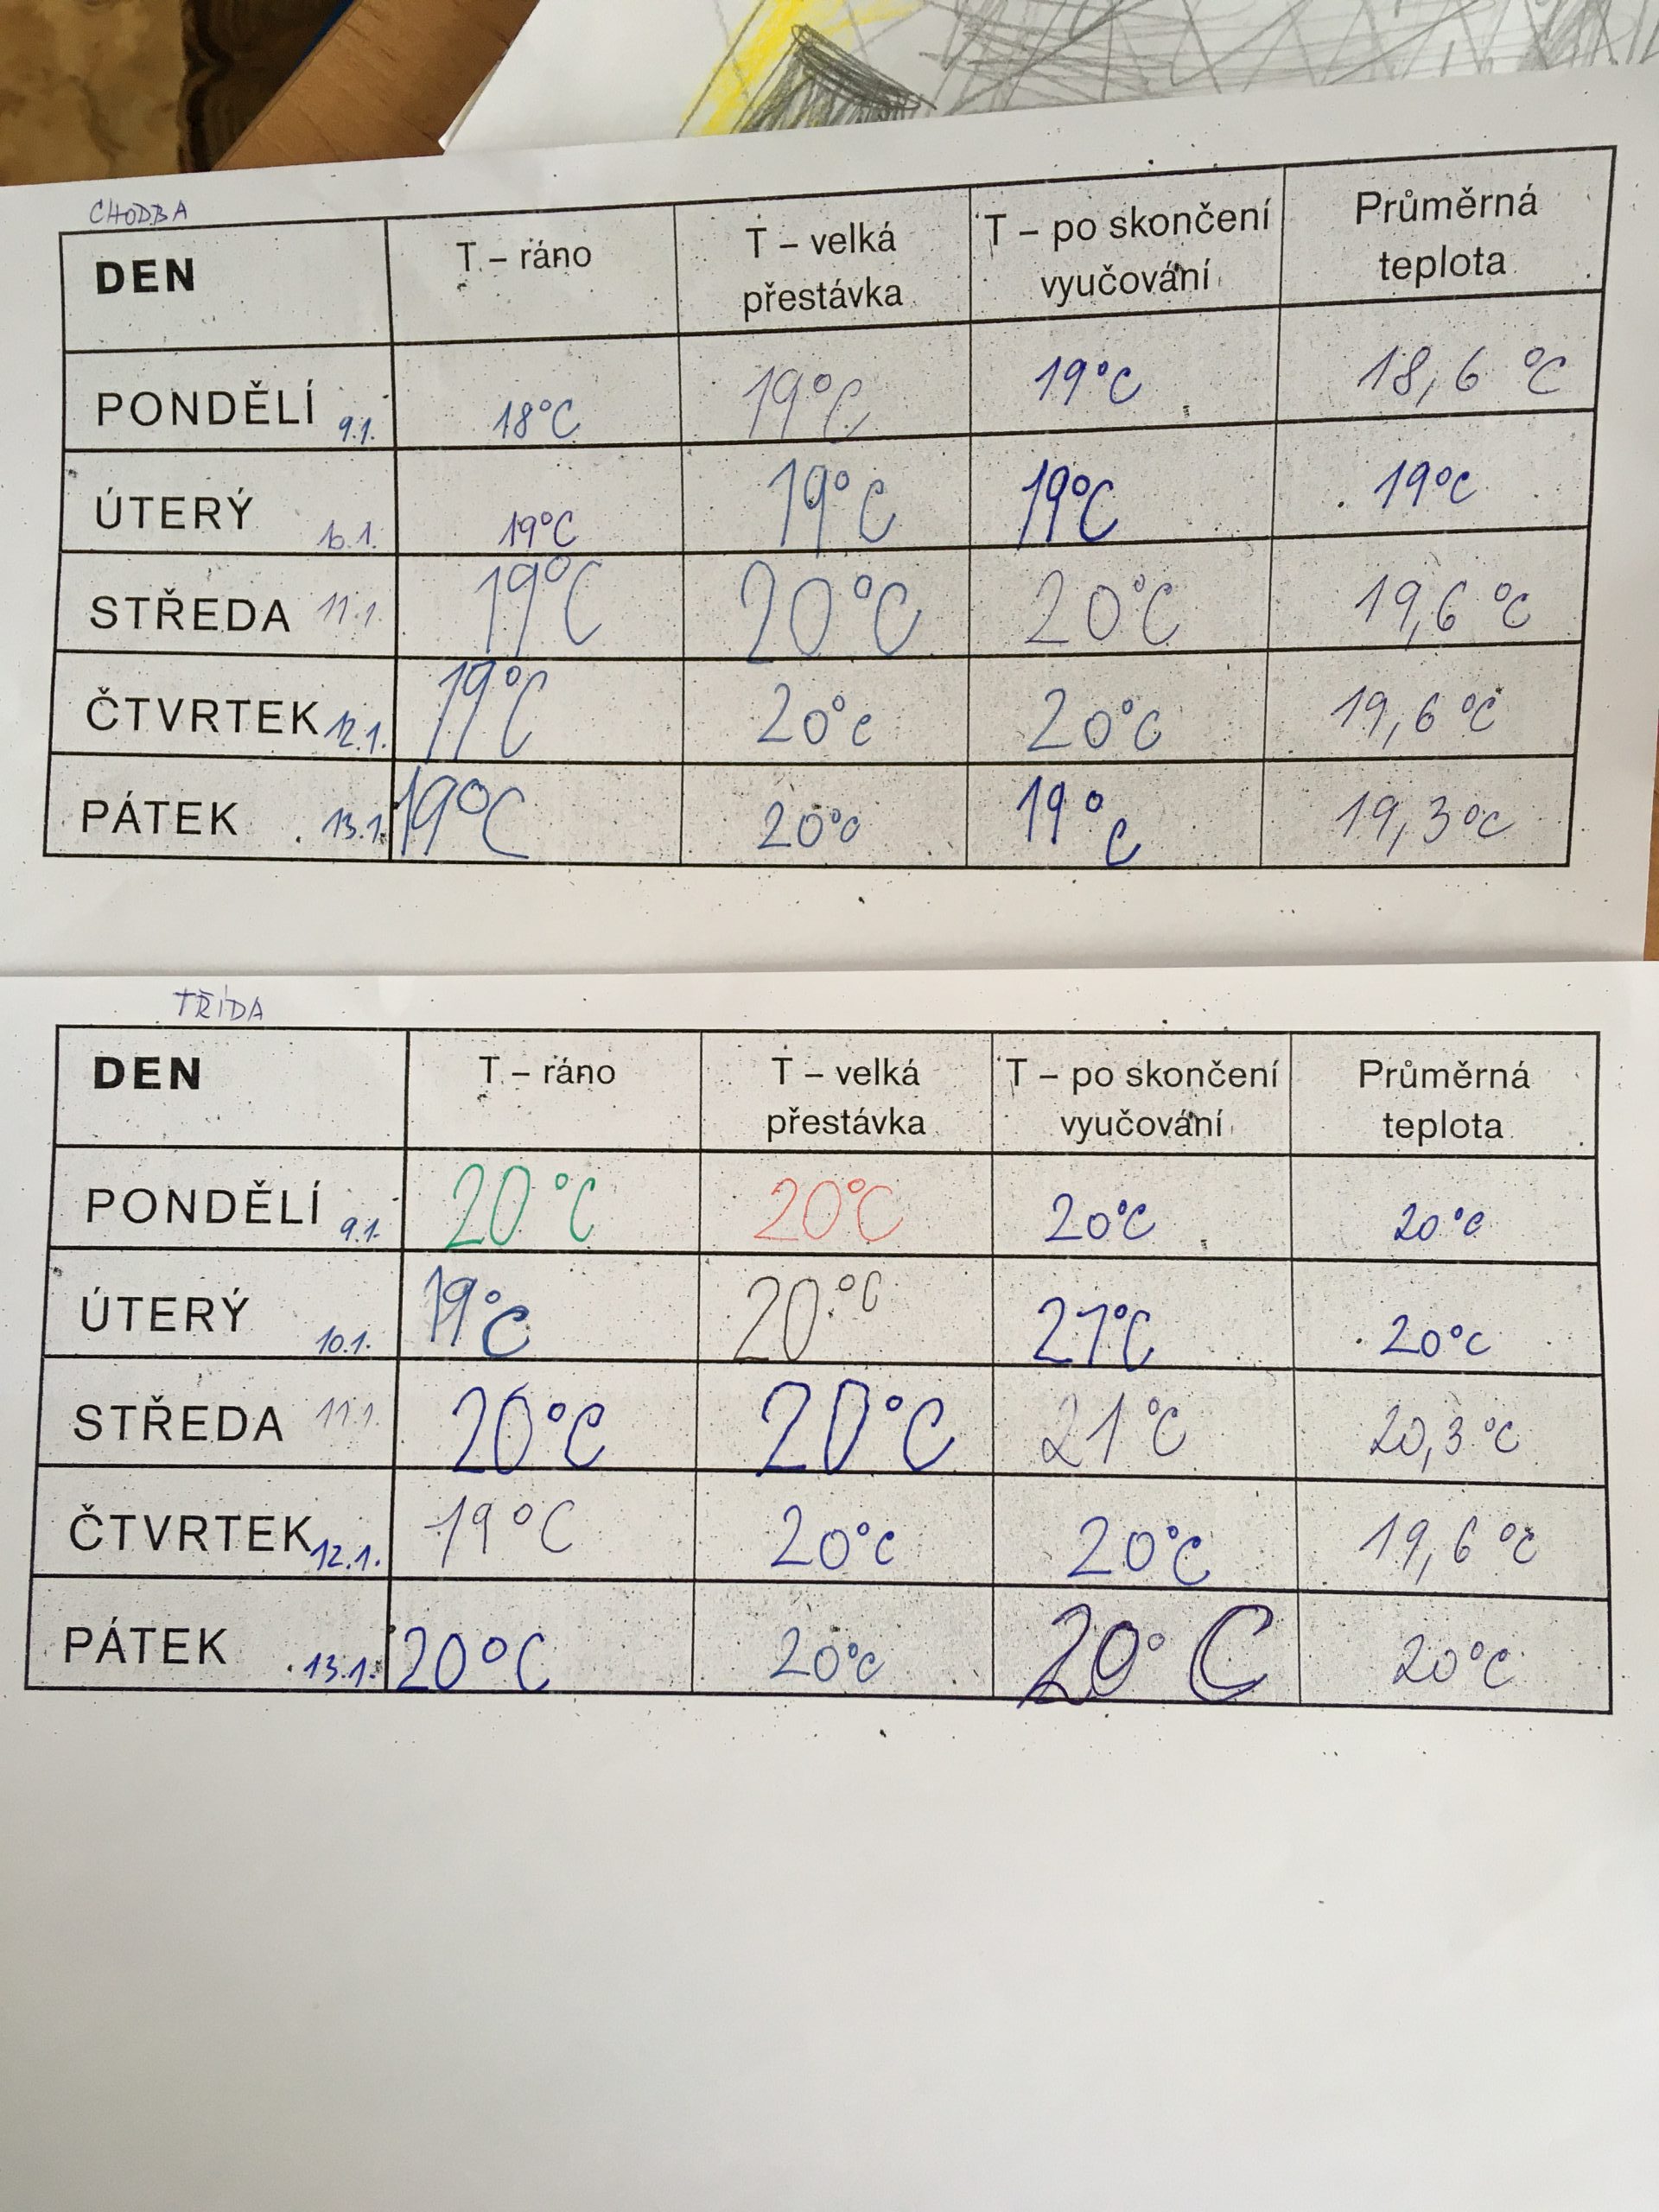 CHODBA
DEN T – ráno T – velká přestávka T – po skončení vyučování Průměrná teplota
PONDĚLÍ 9.1. 18°C 19°C 19°C 18,6 °C
ÚTERÝ 10.1. 19°C 19°C 19°C 19°C
STŘEDA 11.1. 19°C 20°C 20°C 19,6 °C
ČTVRTEK 12.1. 19°C 20°C 20°C 19,6 °C
PÁTEK 13.1. 19°C 20°C 19°C 19,3°C
TŘÍDA
DEN T – ráno T – velká přestávka T – po skončení vyučování Průměrná teplota
PONDĚLÍ 9.1. 20°C 20°C 20°C 20°C
ÚTERÝ 10.1. 19°C 20°C 21°C 20°C
STŘEDA 11.1. 20°C 20°C 21°C 20,3°C
ČTVRTEK 12.1. 19°C 20°C 20°C 19,6°C
PÁTEK 13.1. 20°C 20°C 20°C 20°C